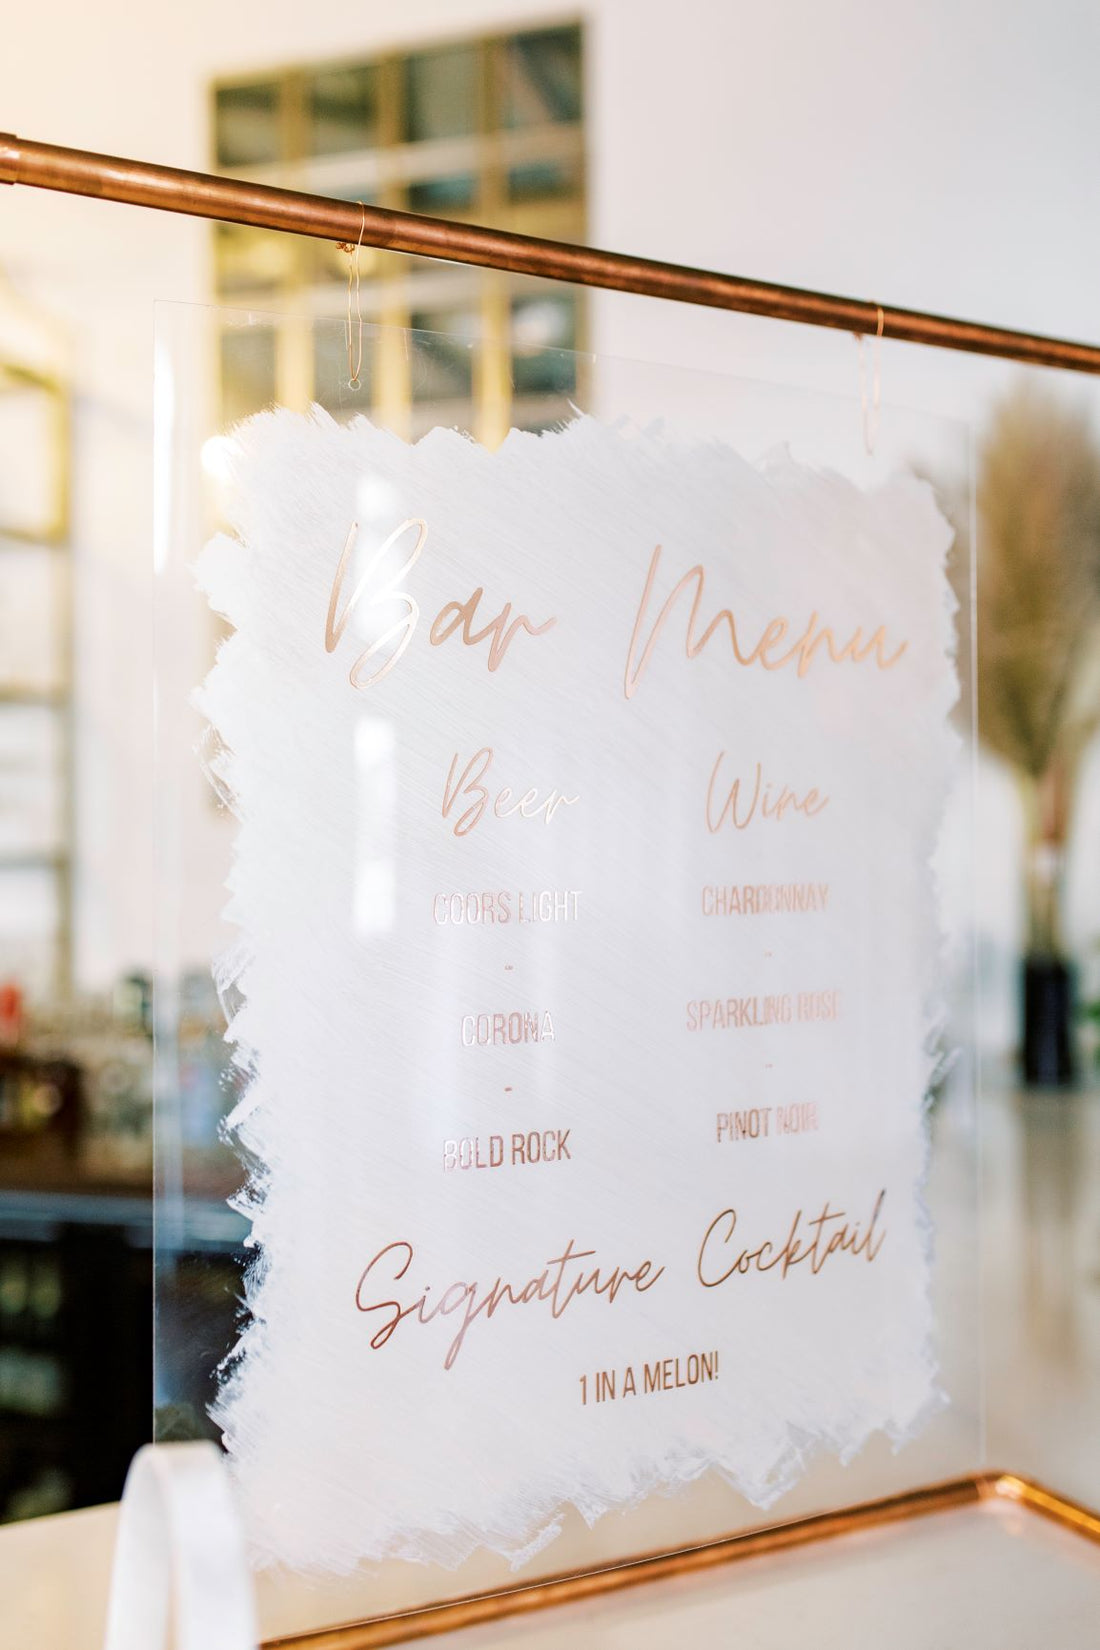 Bar Menu
Beer
COORS LIGHT
-
CORONA
-
BOLD ROCK
Wine
CHARDONNAY
-
SPARKLING ROSE
-
PINOT NOIR
Signature Cocktail
1 IN A MELON!